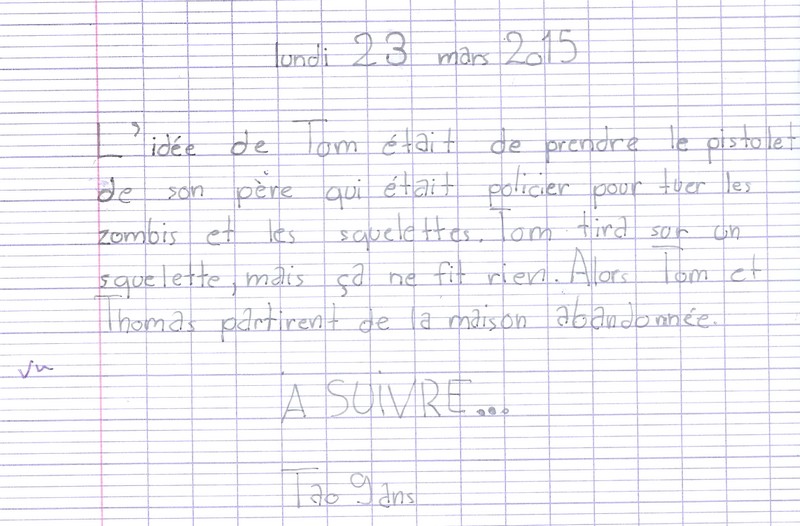 lundi 23 mars 2015
L'idée de Tom était de prendre le pistolet
de son père qui était policier pour tuer les
zombis et les squelettes. Tom tira sur un
squelette, mais ça ne fit rien. Alors Tom et
Thomas partirent de la maison abandonnée.
vu
A SUIVRE...
Tao 9 ans